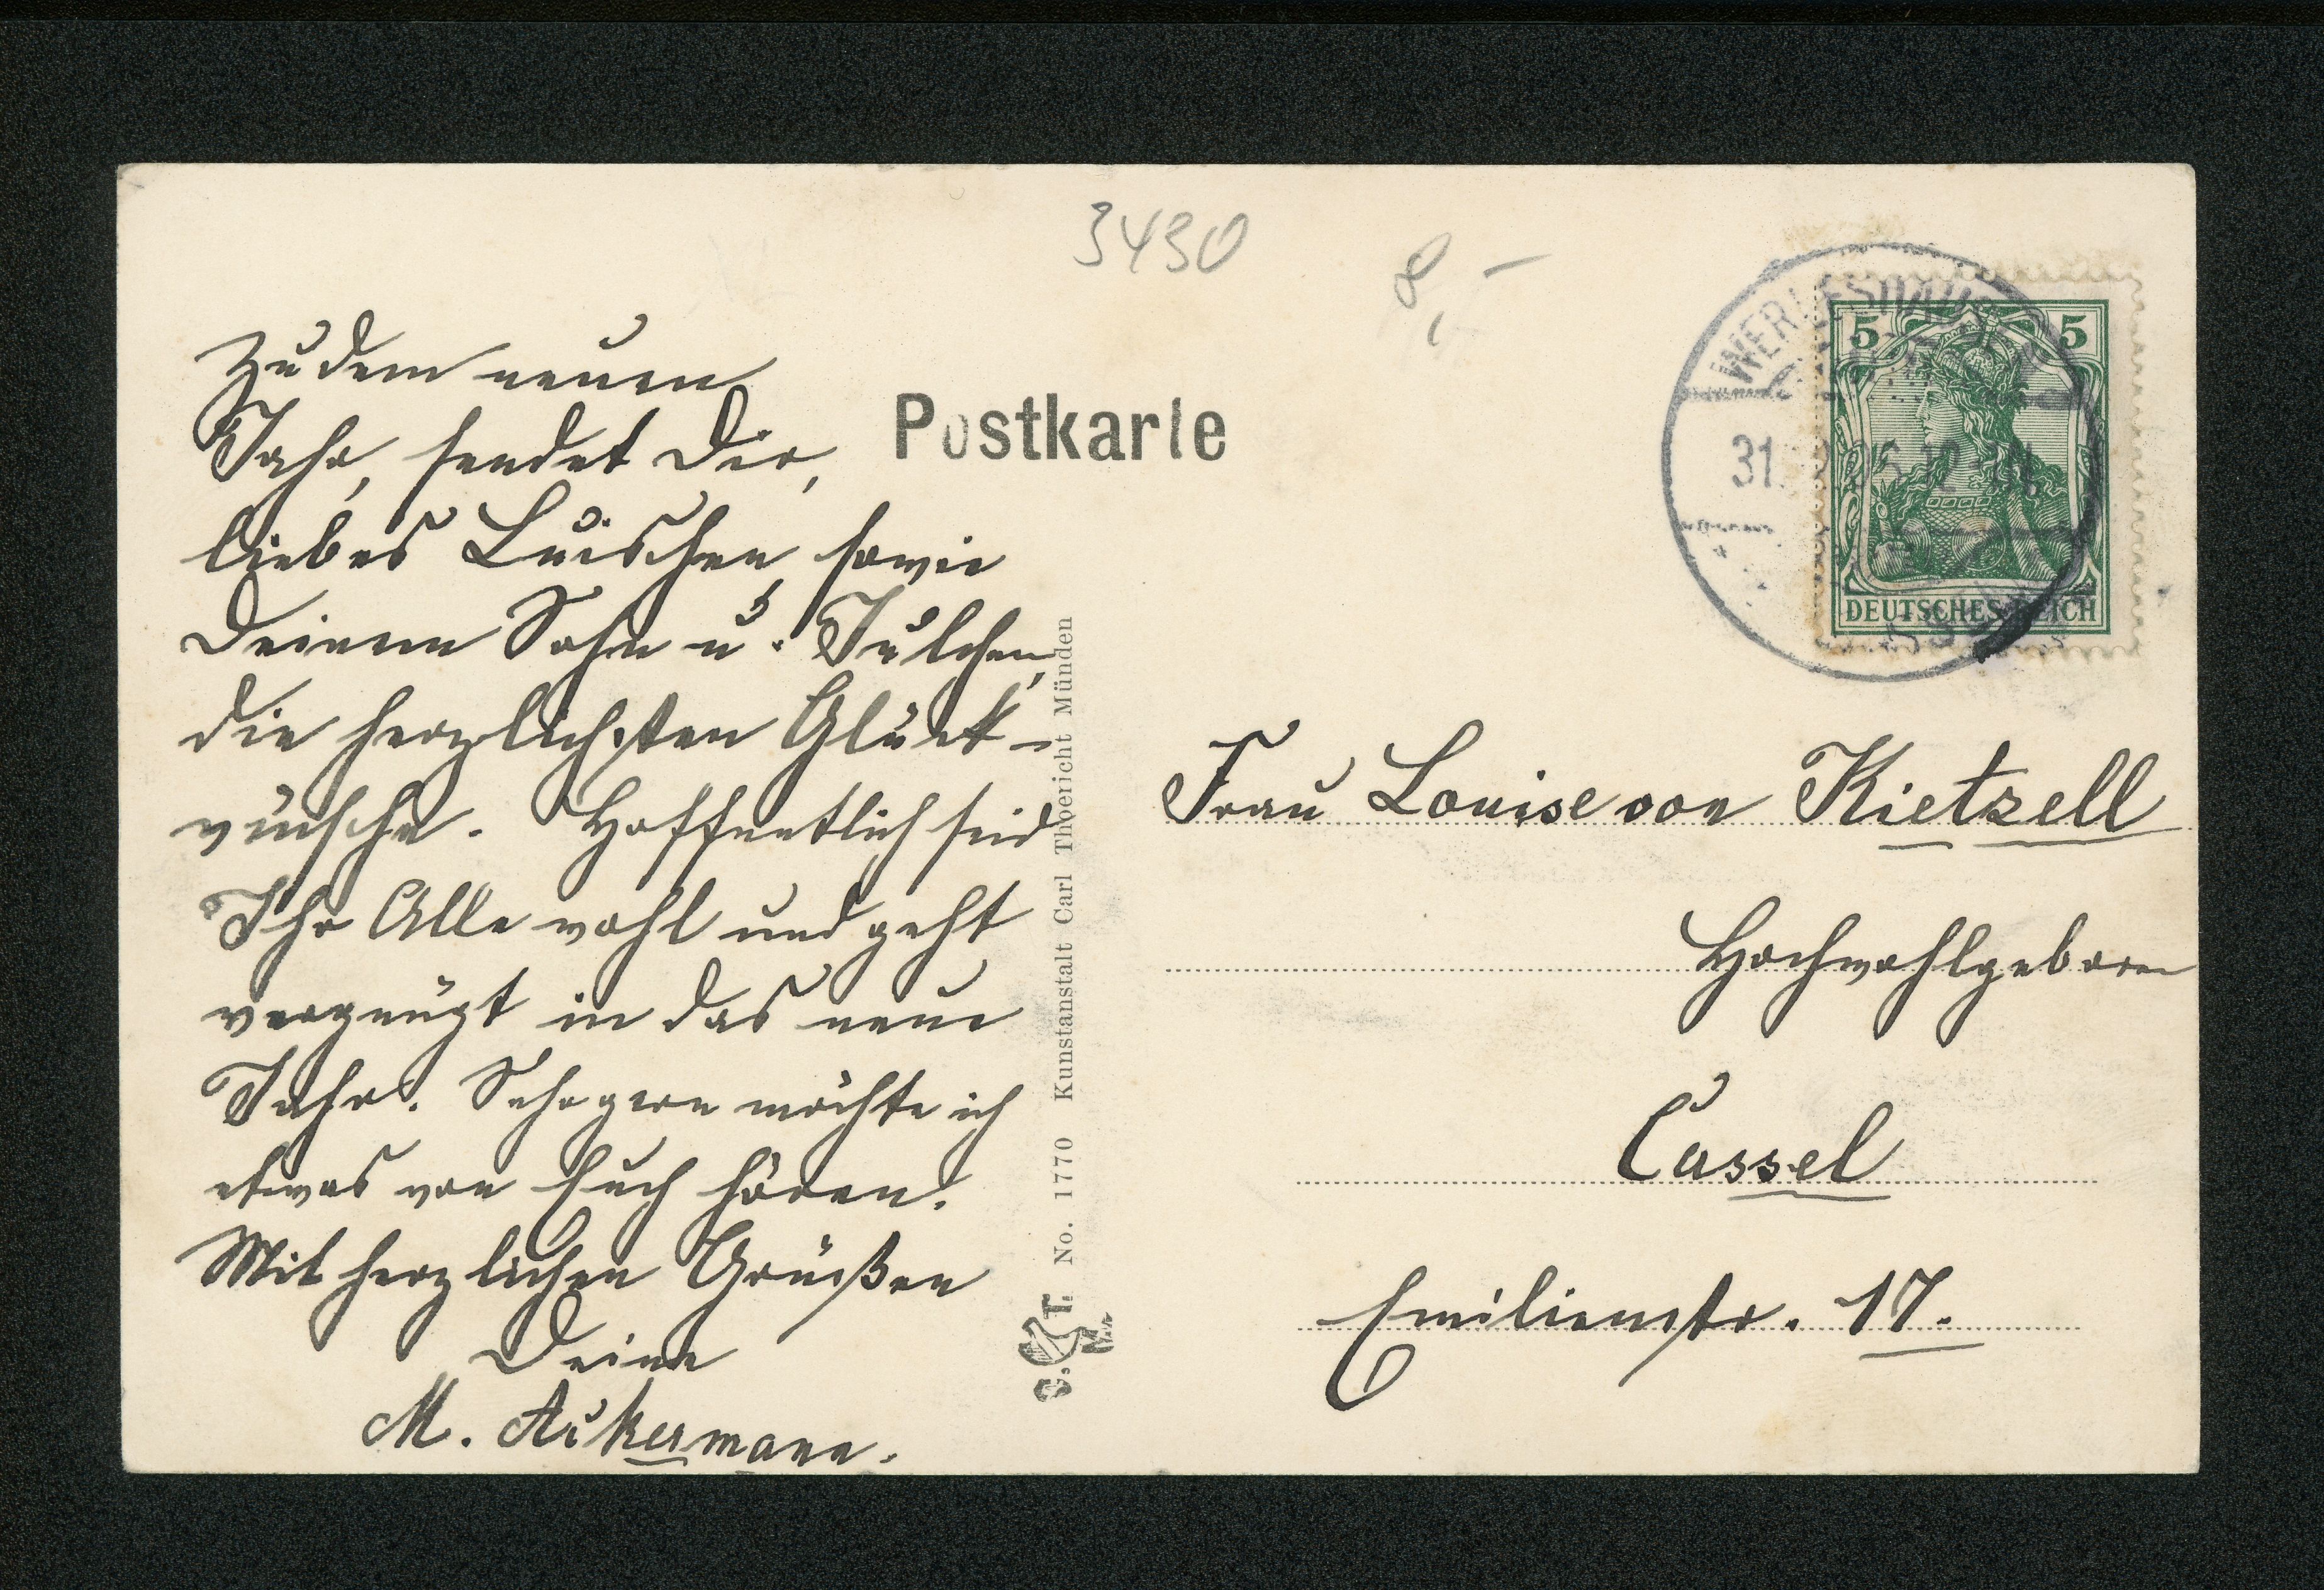 3430
8,-
Zu dem neuen
Jahr, sendet Dir,
liebes Luischen, sowie
Deinem Sohn u. Julchen,
die herzlichsten Glück-
wünsche. Hoffentlich seid
Ihr Alle wohl und geht
vergnügt in das neue
Jahr. Sehr gern möchte ich
etwas von Euch hören.
Mit herzlichen Grüßen
Deine
M. Ackermann.
Postkarte
S. T. M. No. 1770 Kunstanstalt Carl Thoericht Münden
WERLESHAUSEN
31
5 5
DEUTSCHES REICH
Frau Louise von Kietzell
Hochwohlgeboren
Cassel
Emilienstr. 17.